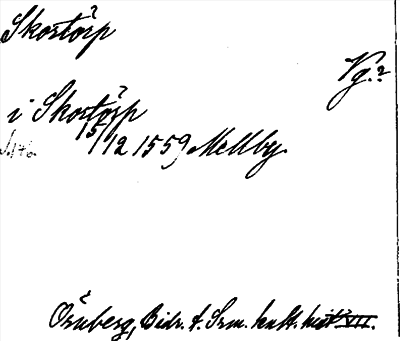 Skostorp
Vg.?
i Skostorp
15/12 1559 Mellby.
S. 176.
Örnberg, Bidr. t. Srm. kult. hist. VII.